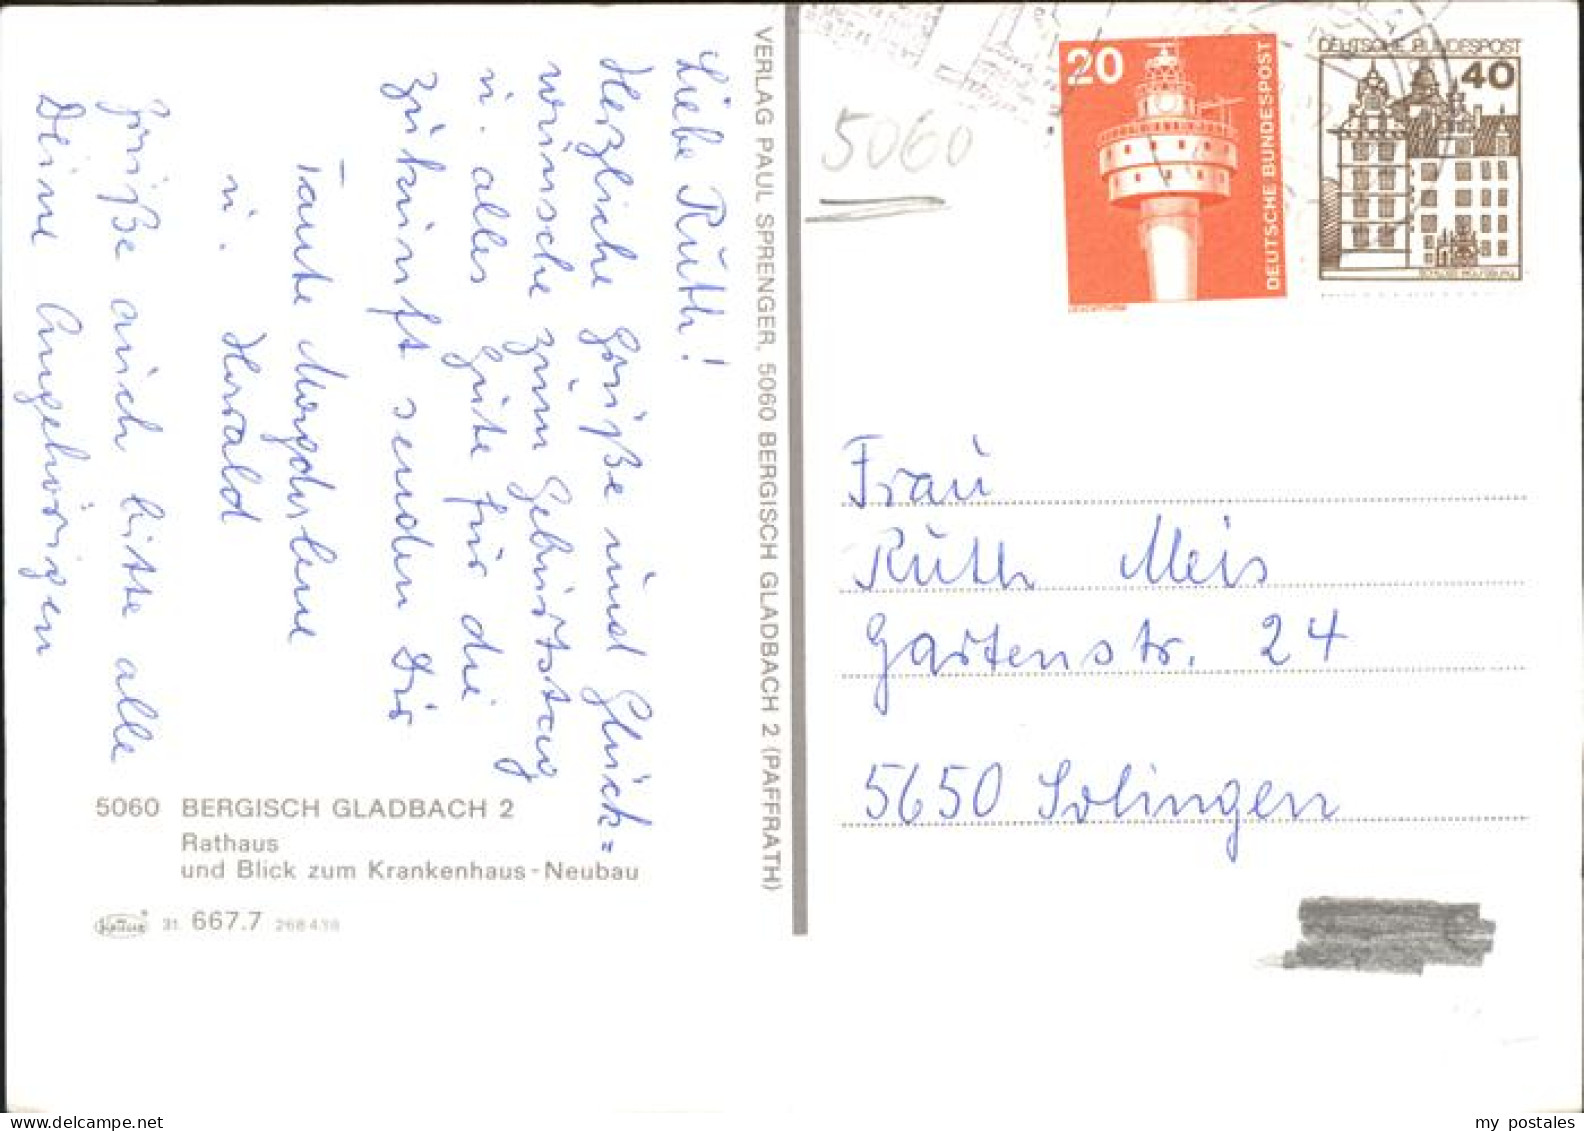 Liebe Ruth!
Herzliche Grüße und Glück=
wünsche zum Geburtstag
u. alles Gute für die
Zukunft senden Dir
Tante Magdalene
u. Harald
Grüße auch bitte alle
Deine Angehörigen
5060 BERGISCH GLADBACH 2
Rathaus
und Blick zum Krankenhaus-Neubau
31 667.7 268436
VERLAG PAUL SPRENGER, 5060 BERGISCH GLADBACH 2 (PAFFRATH)
5060
20
DEUTSCHE BUNDESPOST
DEUTSCHE BUNDESPOST
40
SCHLOSS WOLFSBURG
Frau
Ruth Meis
Gartenstr. 24
5650 Solingen
my postales